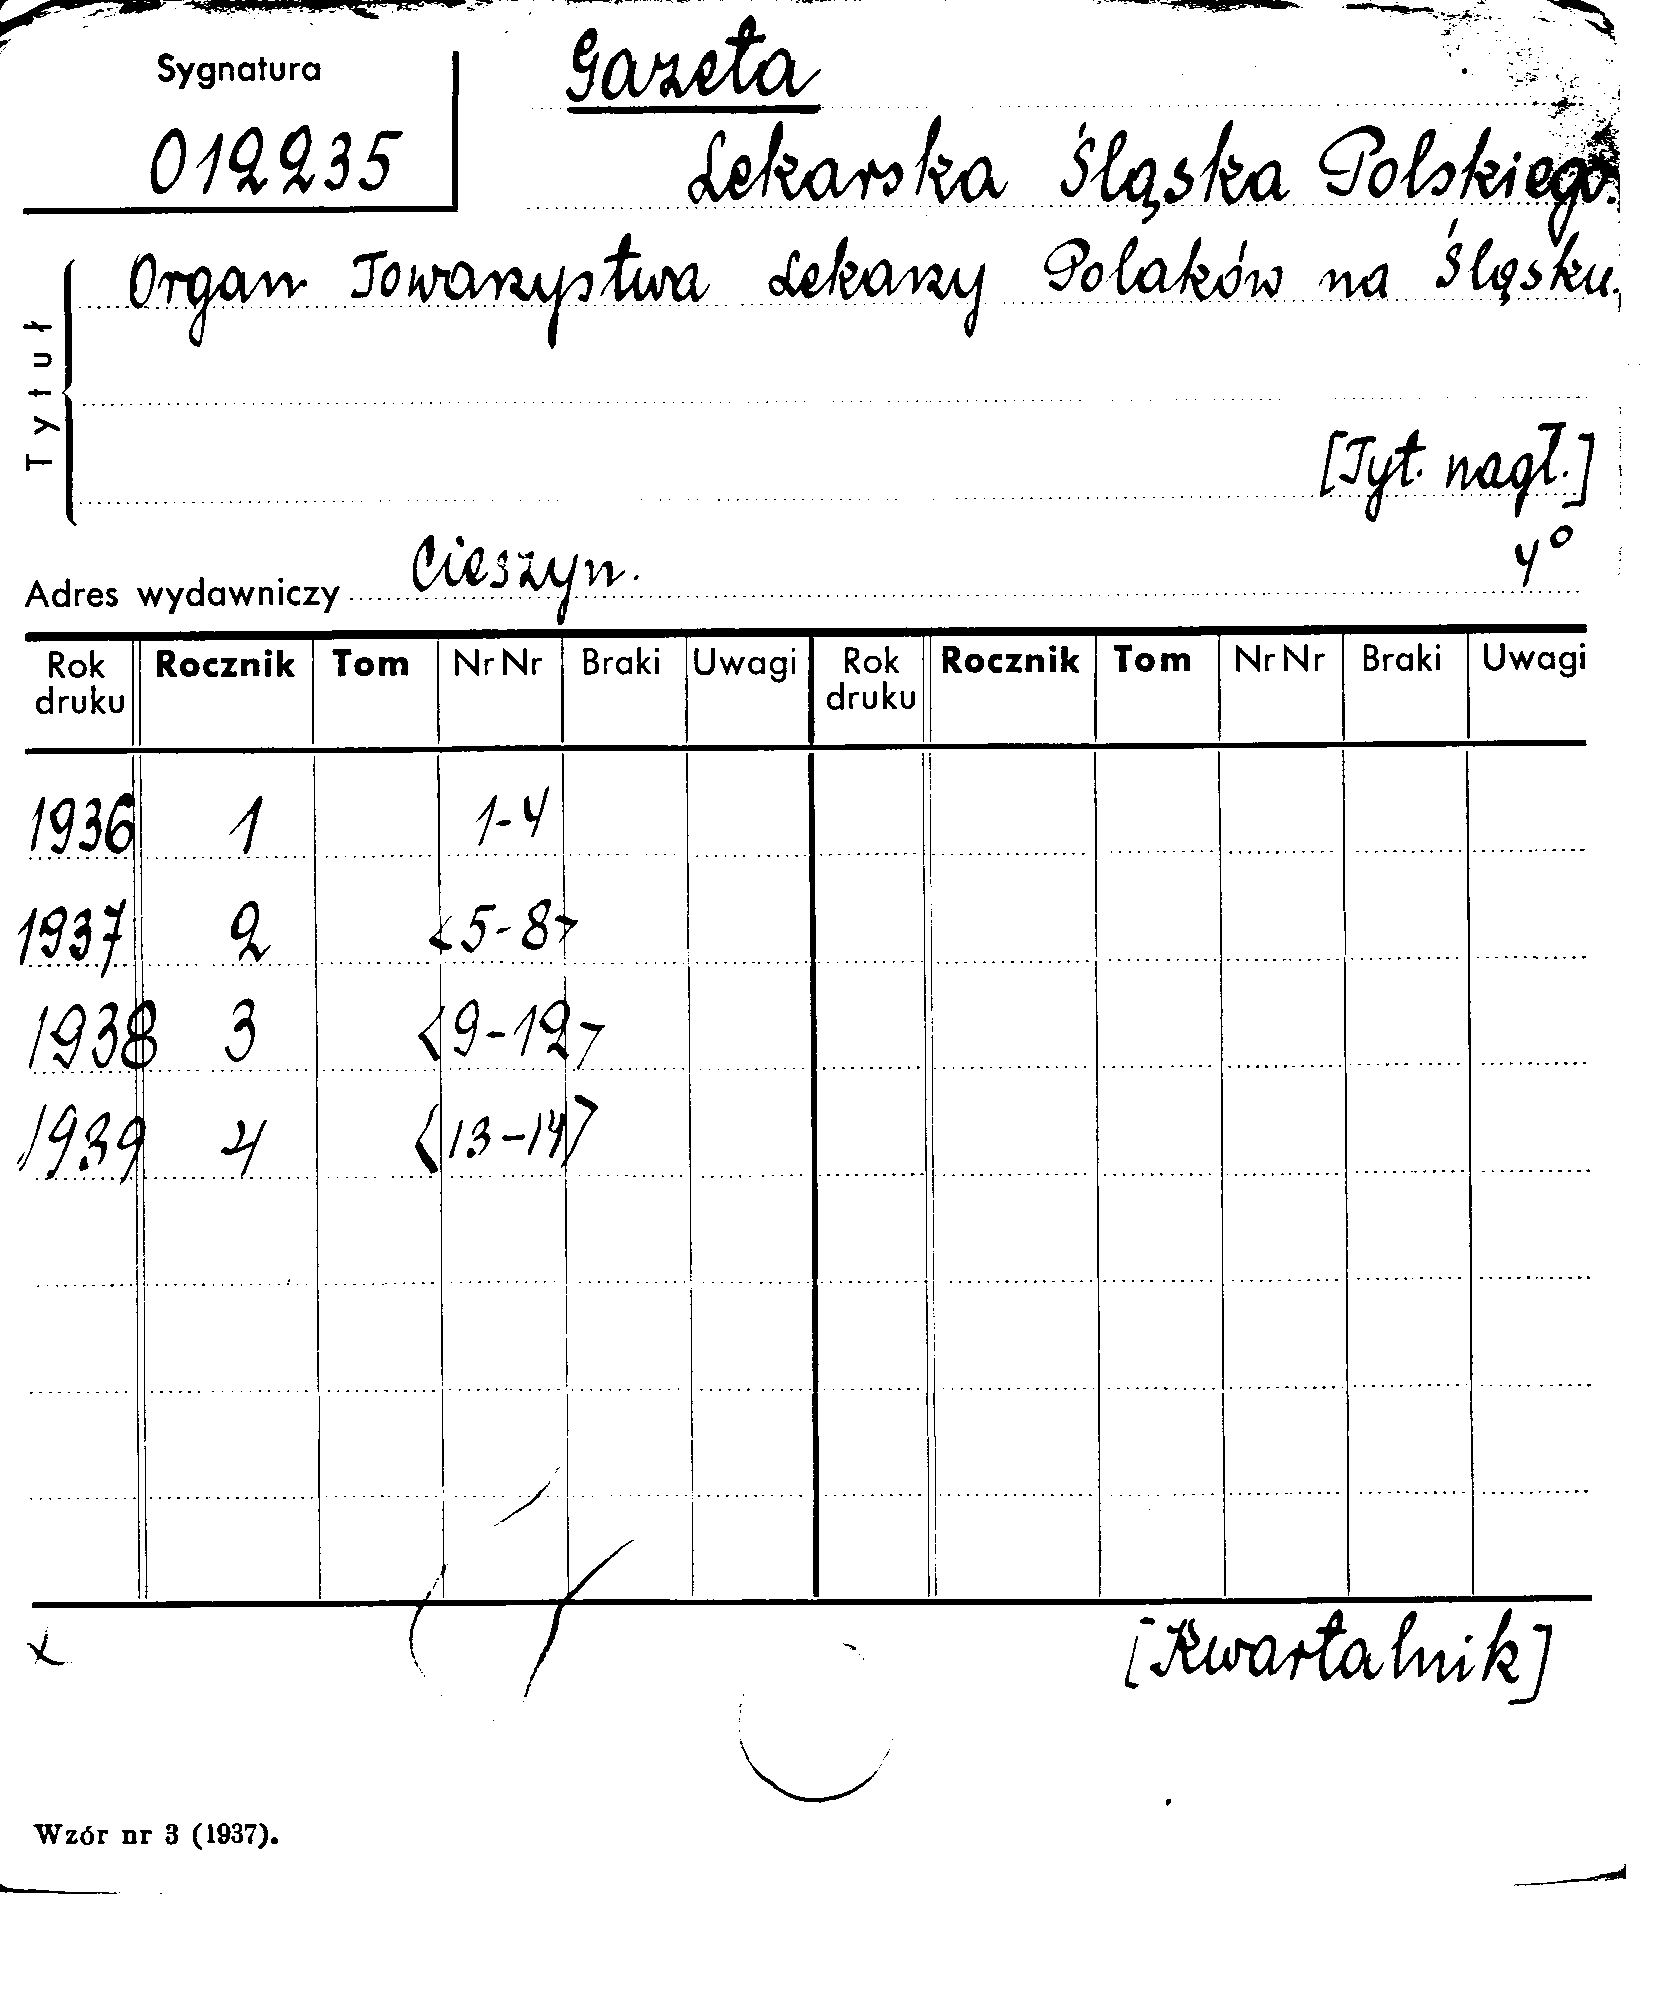 Sygnatura
012235
Gazeta
Lekarska Śląska Polskiego.
Organ Towarzystwa Lekarzy Polaków na Śląsku.
Tytuł
[Tyt. nagł.]
4°
Adres wydawniczy Cieszyn.
Rok druku Rocznik Tom Nr Nr Braki Uwagi Rok druku Rocznik Tom Nr Nr Braki Uwagi
1936 1 1-4
1937 2 <5-8>
1938 3 <9-12>
1939 4 <13-14>
x [Kwartalnik]
Wzór nr 3 (1937).